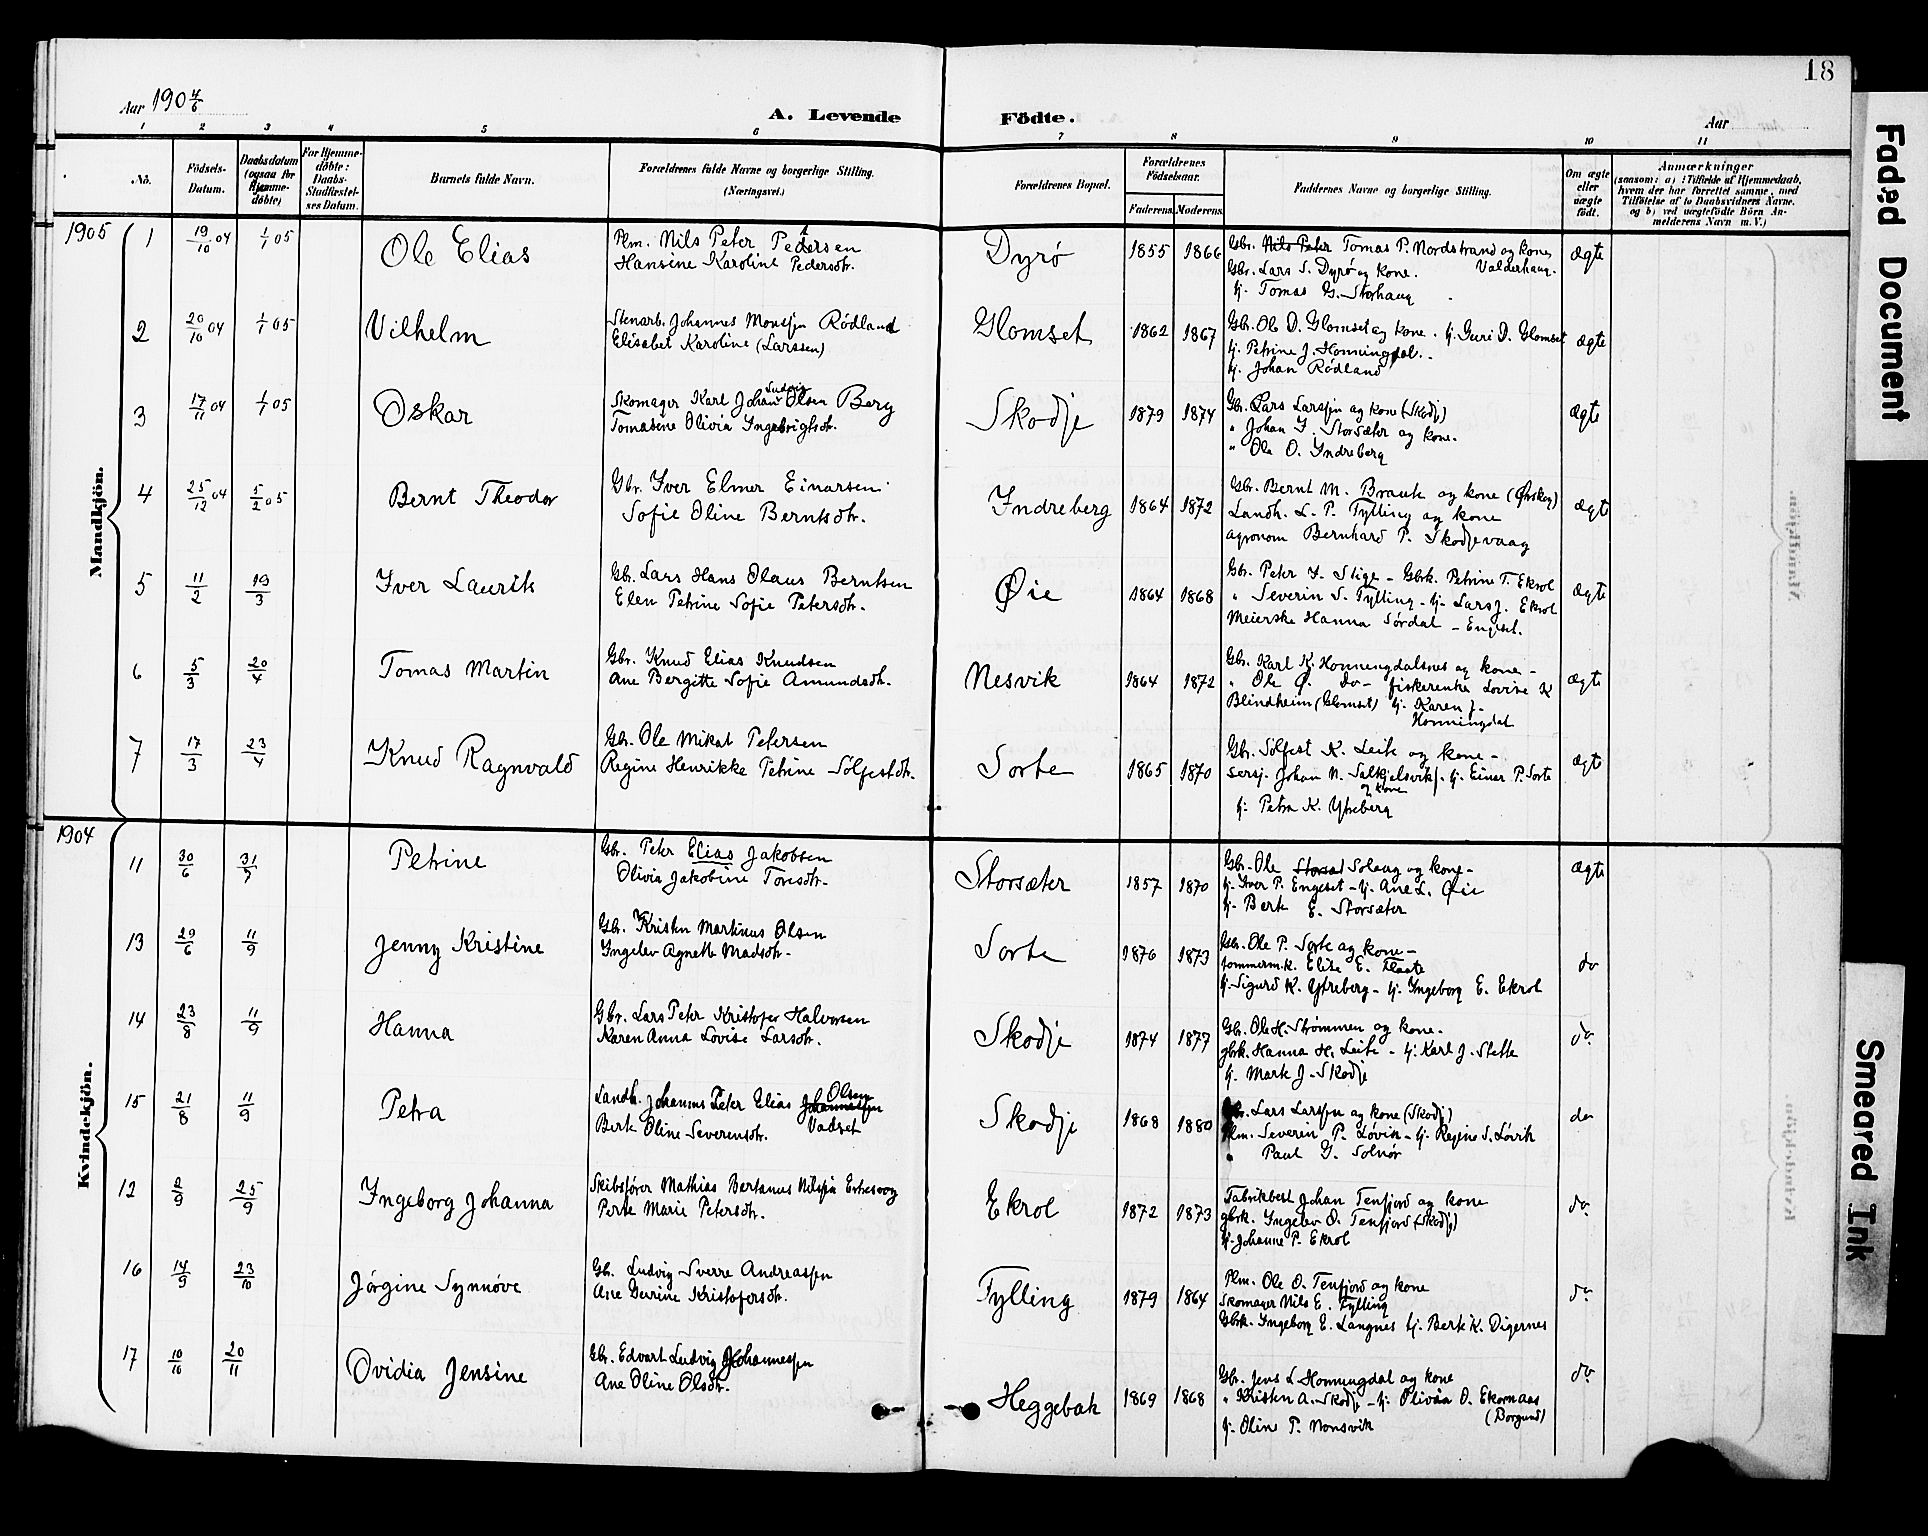 18
Aar 190 4/5
A. Levende Födte.
Aar
1 2 3 4 5 6 7 8 9 10 11
No.
Födsels-Datum.
Daabsdatum (ogsaa for Hjemme-döbte)
For Hjemme-döbte: Daabs-Stadfæstel-ses Datum.
Barnets fulde Navn.
Forældrenes fulde Navne og borgerlige Stilling. (Næringsvei.)
Forældrenes Bopæl.
Forældrenes Födselsaar.
Faderens. Moderens.
Faddernes Navne og borgerlige Stilling.
Om ægte eller uægte födt.
Anmærkninger
(saasom: a) i Tilfælde af Hjemmedaab, hvem der har forrettet samme, med Tilföielse af to Daabsvidners Navne, og b) ved uægtefödte Börn An-melderens Navn m.V.)
Mandkjön.
1905
1 19/10 04 1/1 05 Ole Elias
Plm. Nils Peter Pedersen
Hansine Karoline Pedersdtr.
Dyrø 1855 1866
Gbr. Nils Peter Tomas P. Nordstrand og kone, Valderhaug.
Gbr. Lars S. Dyrø og kone.
Uj. Tomas G. Storhaug
ægte
2 20/10 04 1/1 05 Vilhelm
Stenarb. Johannes Monssen Rødland
Elisabet Karoline (Larssen)
Glomset 1862 1867
Gbr. Ole O. Glomset og kone. Uj. Guri D. Glomset
Uj. Petrine J. Honningdal.
Uj. Johan Rødland
ægte
3 17/11 04 1/1 05 Oskar
Skomager Karl Johan Ludvig Olsen Berg
Tomasine Olivia Ingebrigtsdtr.
Skodje 1879 1874
Gbr. Lars Larssen og kone (Skodj)
" Johan I. Storsæter og kone.
" Ole O. Indreberg
ægte
4 25/12 04 5/2 05 Bernt Theodor
Gbr. Iver Elmer Einarsen
Sofie Oline Berntsdtr.
Indreberg 1864 1872
Gbr. Bernt M. Braute og kone (Ørskog)
Landh. L. P. Fylling og kone
agronom Bernhard P. Skodjevaag
ægte
5 11/2 19/3 Iver Laurits
Gbr. Lars Hans Olaus Berntsen
Elen Petrine Sofie Petersdtr.
Øie 1864 1868
Gbr. Peter I. Stige - Gbrk. Petrine T. Ekrol
" Severin S. Fylling - Uj. Lars J. Ekrol
Meierske Hanna Sørdal - Engset.
ægte
6 5/3 20/4 Tomas Martin
Gbr. Knud Elias Knudsen
Ane Bergitte Sofie Amundsdtr.
Nesvik 1864 1872
Gbr. Karl K. Honningdalsnes og kone -
" Ole Ø. do - fiskerenke Lovise K
Blindheim (Glomset) Uj. Karen J. Honningdal
ægte
7 17/3 23/4 Knud Ragnvald
Gbr. Ole Mikal Petersen
Regine Henrikke Petrine Sølfestdtr.
Sorte 1865 1870
Gbr. Sølfest K. Leite og kone -
sersj. Johan N. Solkjelsvik og kone - Uj. Einar P. Sorte
Uj. Petra K. Ytreberg
ægte
Kvindekjön.
1904
11 30/6 31/7 Petrine
Gbr. Peter Elias Jakobsen
Olivia Jakobine Toresdtr.
Storsæter 1857 1870
Gbr. Ole Solaug og kone -
Uj. Iver P. Engeset - Uj. Ane L. Øie
Uj. Berte E. Storsæter
ægte
13 29/6 11/9 Jenny Kristine
Gbr. Kristen Martinus Olsen
Ingelev Agnette Madsdtr.
Sorte 1876 1873
Gbr. Ole P. Sorte og kone -
tommerm.k. Elise E. Flaate
Uj. Sigurd K. Ytreberg - Uj. Ingeborg E. Ekrol
do
14 23/8 11/9 Hanna
Gbr. Lars Peter Kristofer Halvorsen
Karen Anna Lovise Larsdtr.
Skodje 1874 1877
Gbr. Ole H. Strømmen og kone.
gbrk. Hanna H. Leite - Uj. Karl J. Stette
Uj. Marte J. Skodje
do
15 21/8 11/9 Petra
Landh. Johannes Peter Elias Johannessen Olsen Vadset
Berte Oline Severensdtr.
Skodje 1868 1880
Gbr. Lars Larssen og kone (Skodj)
Plm. Severin P. Løvik - Uj. Regine S. Løvik
" Paul G. Solnør
do
12 2/9 25/9 Ingeborg Johanna
Skibsfører Mathias Bertanus Nilssen
Perte Marie Petersdtr.
Ekrol 1872 1873
Fabrikbest Johan Tenfjord og kone
gbrk. Ingelev O. Tenfjord (Skodj)
Uj. Johanne P. Ekrol
do
16 14/9 23/10 Jørgine Synnøve
Gbr. Ludvig Sverre Andreassen
Ane Gurine Kristofersdtr.
Fylling 1879 1864
Plm. Ole O. Tenfjord og kone
Skomager Nils E. Fylling
Gbrk. Ingeborg E. Langnes Uj. Berte K. Digernes
do
17 10/10 20/11 Ovidia Jensine
Gbr. Edvart Ludvig Johannessen
Ane Oline Olsdtr.
Heggebak 1869 1868
Gbr. Jens L Honningdal og kone
" Kristen A. Skodje - Uj. Olivia O. Ekornaas (Borgund)
Uj. Oline P. Nonsvik
do
Faded Document
Smeared Ink